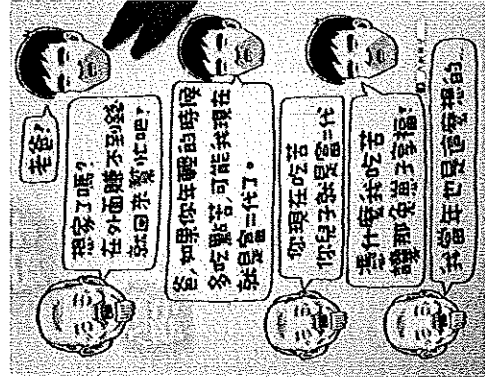 老爸!
想家了嗎?
在外面賺不到錢
就回來幫忙吧!
爸,如果你年輕的時候
多吃點苦,可能我現在
就是富二代了。
你現在吃苦
你兒子就是富二代
憑什麼我吃苦
讓那兔崽子享福!
我當年也是這麼想的